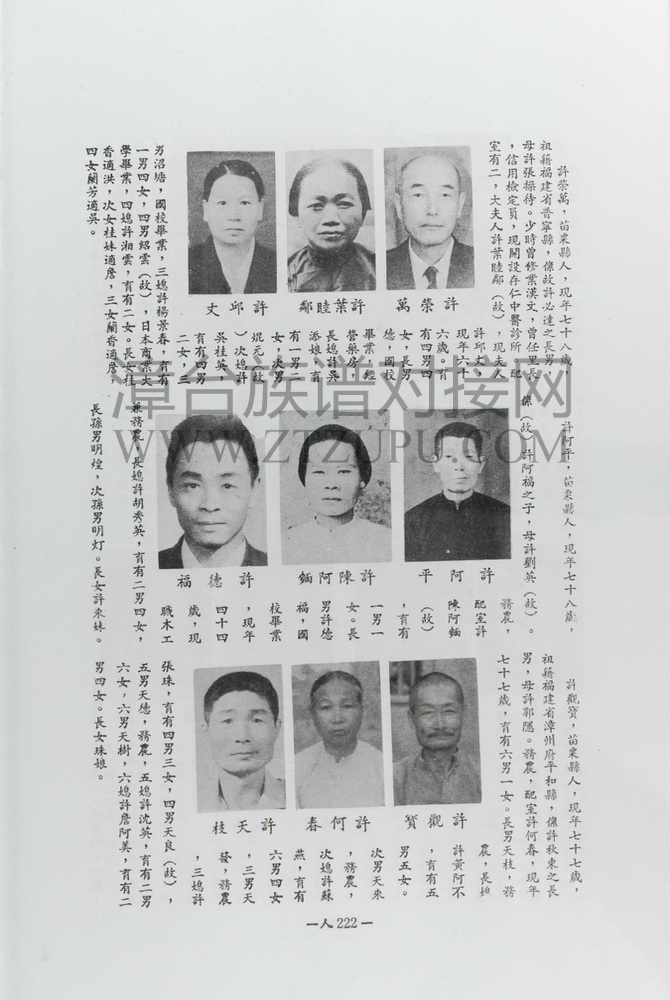 許榮萬，苗栗縣人，現年七十八歲，
祖籍福建省普寧縣，係故許必達之長男，
母許張操待。少時曾修業漢文，曾任里長
，信用檢定員，現開設存仁中醫診所。配
室有二，大夫人許葉睦鄰（故），現夫人
許榮萬
許葉睦鄰
許邱丈
許邱丈，
現年六十
六歲。育
有四男四
女，長男
德，國校
畢業，經
營藥房，
長媳許吳
添娘，育
有一男二
女，次男
焜元（故
）次媳許
吳桂英，
育有四男
二女，三
男沼塘，國校畢業，三媳許楊景春，育有
一男四女，四男紹雲（故），日本商業大
學畢業，四媳許湘雲，育有二女。長女桂
香適洪，次女桂妹適詹，三女蘭香適詹，
四女蘭芳適吳。
許阿平，苗栗縣人，現年七十八歲，
係（故）許阿福之子，母許劉英（故）。
許阿平
許陳阿緬
許德福
務農，
配室許
陳阿緬
（故）
，育有
一男一
女。長
男許德
福，國
校畢業
，現年
四十四
歲，現
職木工
兼務農，長媳許胡秀英，育有二男四女，
長孫男明煌，次孫男明灯。長女許來妹。
許觀贊，苗栗縣人，現年七十七歲，
祖籍福建省漳州府平和縣，係許秋東之長
男，母許郭隱。務農，配室許何春，現年
七十七歲，育有六男一女。長男天枝，務
許觀贊
許何春
許天枝
農，長媳
許黃阿不
，育有五
男五女。
次男天來
，務農，
次媳許蘇
燕，育有
六男四女
，三男天
發，務農
，三媳許
張珠，育有四男三女，四男天良（故），
五男天德，務農，五媳許沈英，育有二男
六女，六男天樹，六媳許詹阿美，育有二
男四女。長女珠娘。
—人222—
漳台族谱对接网
WWW.ZTZUPU.COM